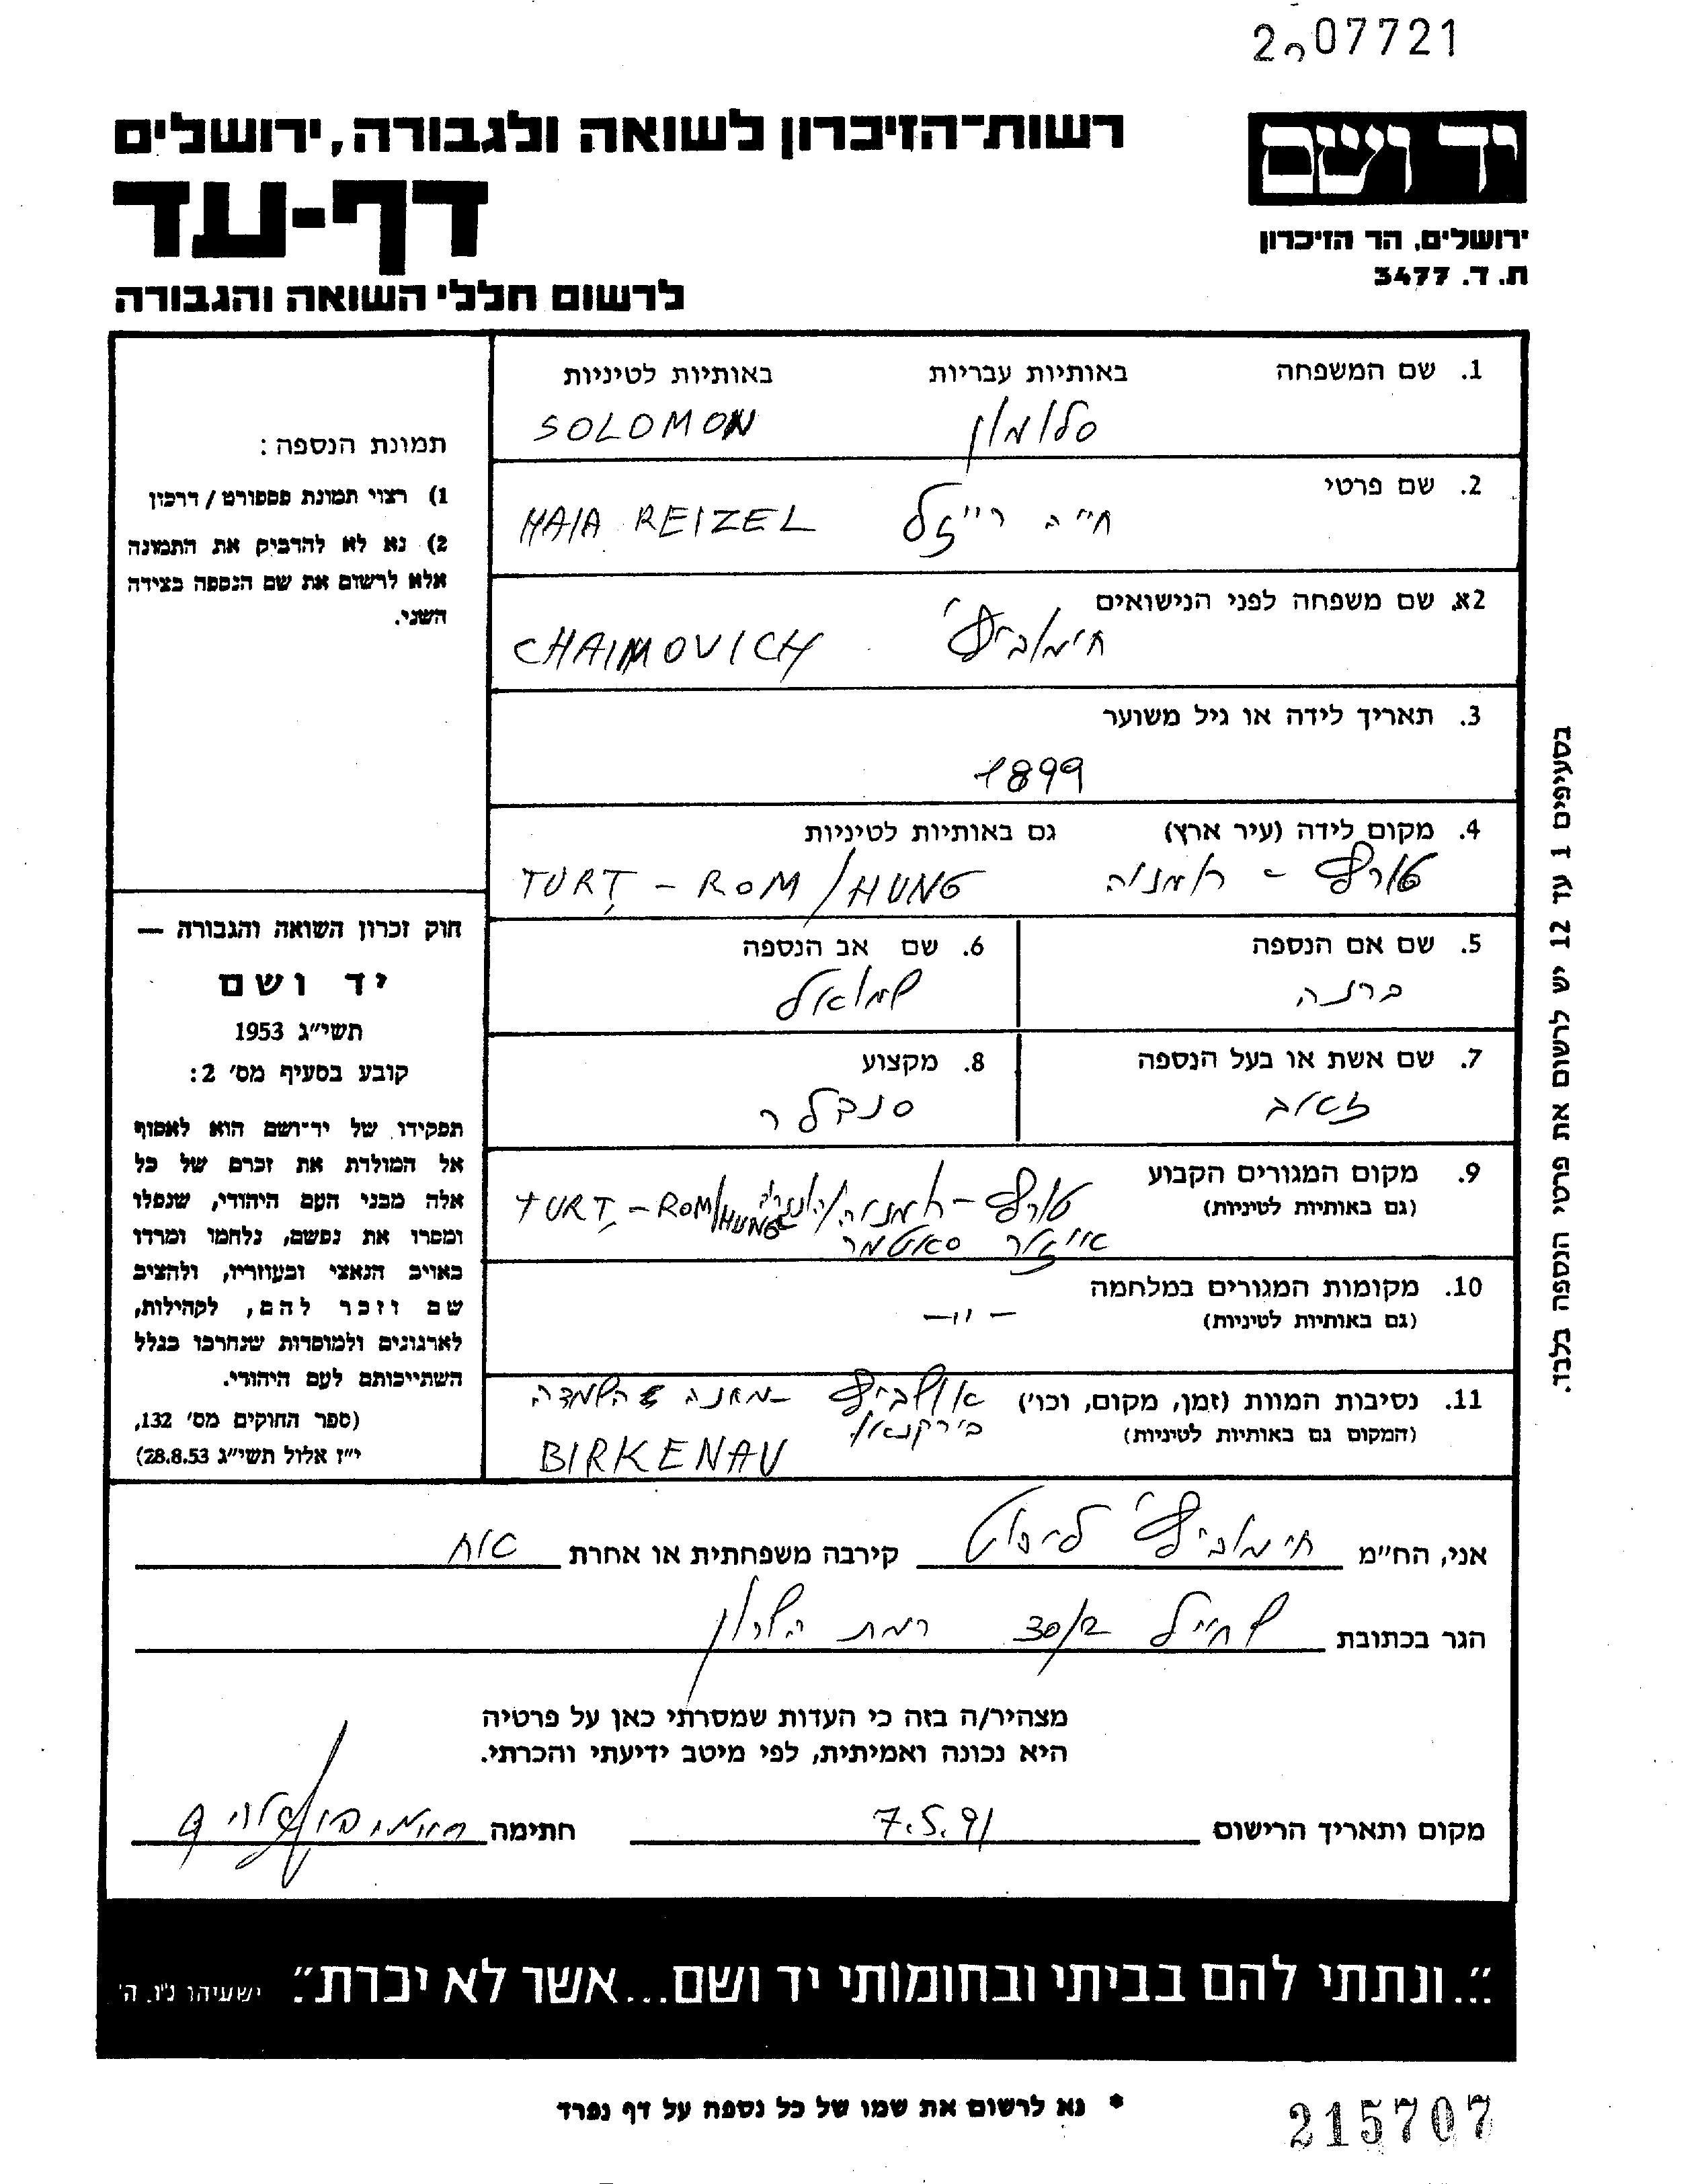 2 07721
יד ושם
ירושלים, הר הזיכרון
ת. ד. 3477
רשות-הזיכרון לשואה ולגבורה, ירושלים
דף-עד
לרשום חללי השואה והגבורה
1. שם המשפחה באותיות עבריות באותיות לטיניות
סלומון SOLOMON
2. שם פרטי
חייה רייזל HAIA REIZEL
2א. שם משפחה לפני הנישואים
חימוביץ' CHAIMOVICH
3. תאריך לידה או גיל משוער
1899
4. מקום לידה (עיר ארץ) גם באותיות לטיניות
טורץ - רומניה TURŢ - ROM/HUNG
5. שם אם הנספה
6. שם אב הנספה
שמואל
7. שם אשת או בעל הנספה
8. מקצוע
סנדלר
9. מקום המגורים הקבוע
(גם באותיות לטיניות)
טורץ - רומניה/הונגריה TURŢ - ROM/HUNG
איזור סאטמר
10. מקומות המגורים במלחמה
(גם באותיות לטיניות)
— " —
11. נסיבות המוות (זמן, מקום, וכו')
(המקום גם באותיות לטיניות)
אושביץ מחנה השמדה
בירקנאו
BIRKENAU
תמונת הנספה:
1) רצוי תמונת פספורט / דרכון
2) נא לא להדביק את התמונה
אלא לרשום את שם הנספה בצידה
השני.
חוק זכרון השואה והגבורה —
יד ושם
תשי"ג 1953
קובע בסעיף מס' 2:
תפקידו של יד-ושם הוא לאסוף
אל המולדת את זכרם של כל
אלה מבני העם היהודי, שנפלו
ומסרו את נפשם, נלחמו ומרדו
באויב הנאצי ובעוזריו, ולהציב
שם וזכר להם, לקהילות,
לארגונים ולמוסדות שנחרבו בגלל
השתייכותם לעם היהודי.
(ספר החוקים מס' 132,
י"ז אלול תשי"ג 28.8.53)
בסעיפים 1 עד 12 יש לרשום את פרטי הנספה בלבד.
אני, הח"מ חימוביץ' קירבה משפחתית או אחרת אח
הגר בכתובת 30/2 רמת השרון
מצהיר/ה בזה כי העדות שמסרתי כאן על פרטיה
היא נכונה ואמיתית, לפי מיטב ידיעתי והכרתי.
מקום ותאריך הרישום 7.5.91 חתימה
"...ונתתי להם בביתי ובחומותי יד ושם...אשר לא יכרת". ישעיהו נ"ו, ה'
* נא לרשום את שמו של כל נספה על דף נפרד
215707